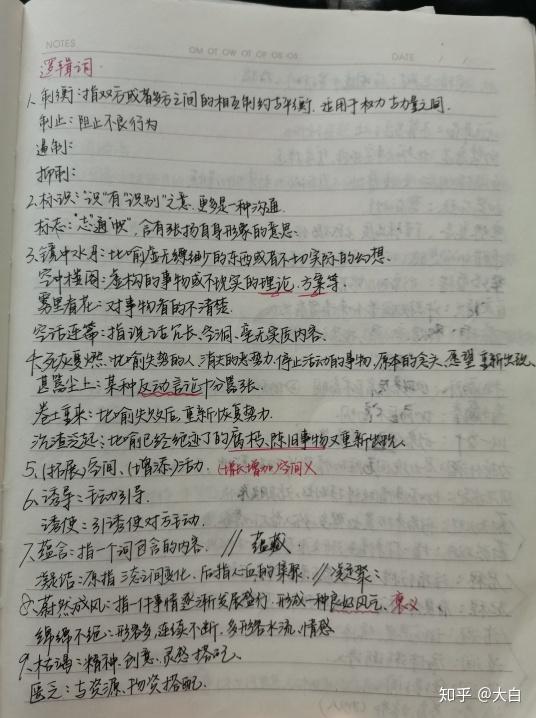 NOTES
DATE / /
逻辑词.
1、制衡:指双方或者多方之间的相互制约与平衡. 适用于权力与力量之间.
制止:阻止不良行为
遏制:
抑制:
2、标识:"识"有"识别"之意.更多是一种沟通.
标志:"志"通"帜",含有张扬自身形象的意思.
3、镜中水月:比喻虚无缥缈的东西或者不切实际的幻想.
空中楼阁:虚构的事物或不现实的理论、方案等.
雾里看花:对事物看的不清楚.
空话连篇:指说话冗长、空洞、毫无实质内容.
4、死灰复燃:比喻失势的人、消失的恶势力、停止活动的事物、原本的念头、愿望重新出现.
甚嚣尘上:某种反动言论十分嚣张.
卷土重来:比喻失败后,重新恢复势力.
沉渣泛起:比喻已经绝迹了的腐朽、陈旧事物又重新出现.
5、(拓展)空间、(增添)活力. (增长、增加)空间×
6、诱导:主动引导.
诱使:引诱使对方主动.
7、蕴含:指一个词包含的内容. //
凝结:原指三态之间变化,后指心血的集聚. //凝聚:
8、蔚然成风:指一件事情逐渐发展盛行,形成一种良好风气. 褒义.
绵绵不绝:形容多,连续不断,多形容水流、情感.
9、枯竭:精神、创意、灵感搭配.
匮乏:与资源、物资搭配.
知乎 @大白